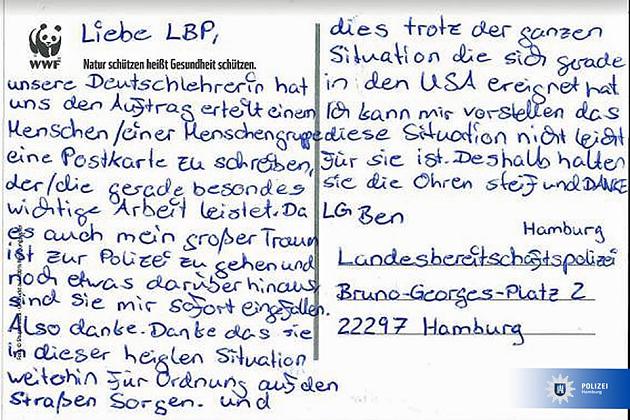 WWF
Natur schützen heißt Gesundheit schützen.
Liebe LBP,
unsere Deutschlehrerin hat
uns den Auftrag erteilt einem
Menschen/einer Menschengruppe
eine Postkarte zu schreiben,
der/die gerade besondes
wichtige Arbeit leistet. Da
es auch mein großer Traum
ist zur Polizei zu gehen und
noch etwas darüber hinaus
sind sie mir sofort eingefallen.
Also danke. Danke das sie
in dieser heiglen Situation
weiterhin für Ordnung auf den
Straßen Sorgen. und
dies trotz der ganzen
Situation die sich gerade
in den USA ereignet hat
Ich kann mir vorstellen das
diese Situation nicht leicht
für sie ist. Deshalb halten
sie die Ohren steif und DANKE
LG Ben
Hamburg
Landesbereitschaftspolizei
Bruno-Georges-Platz 2
22297 Hamburg
POLIZEI
Hamburg